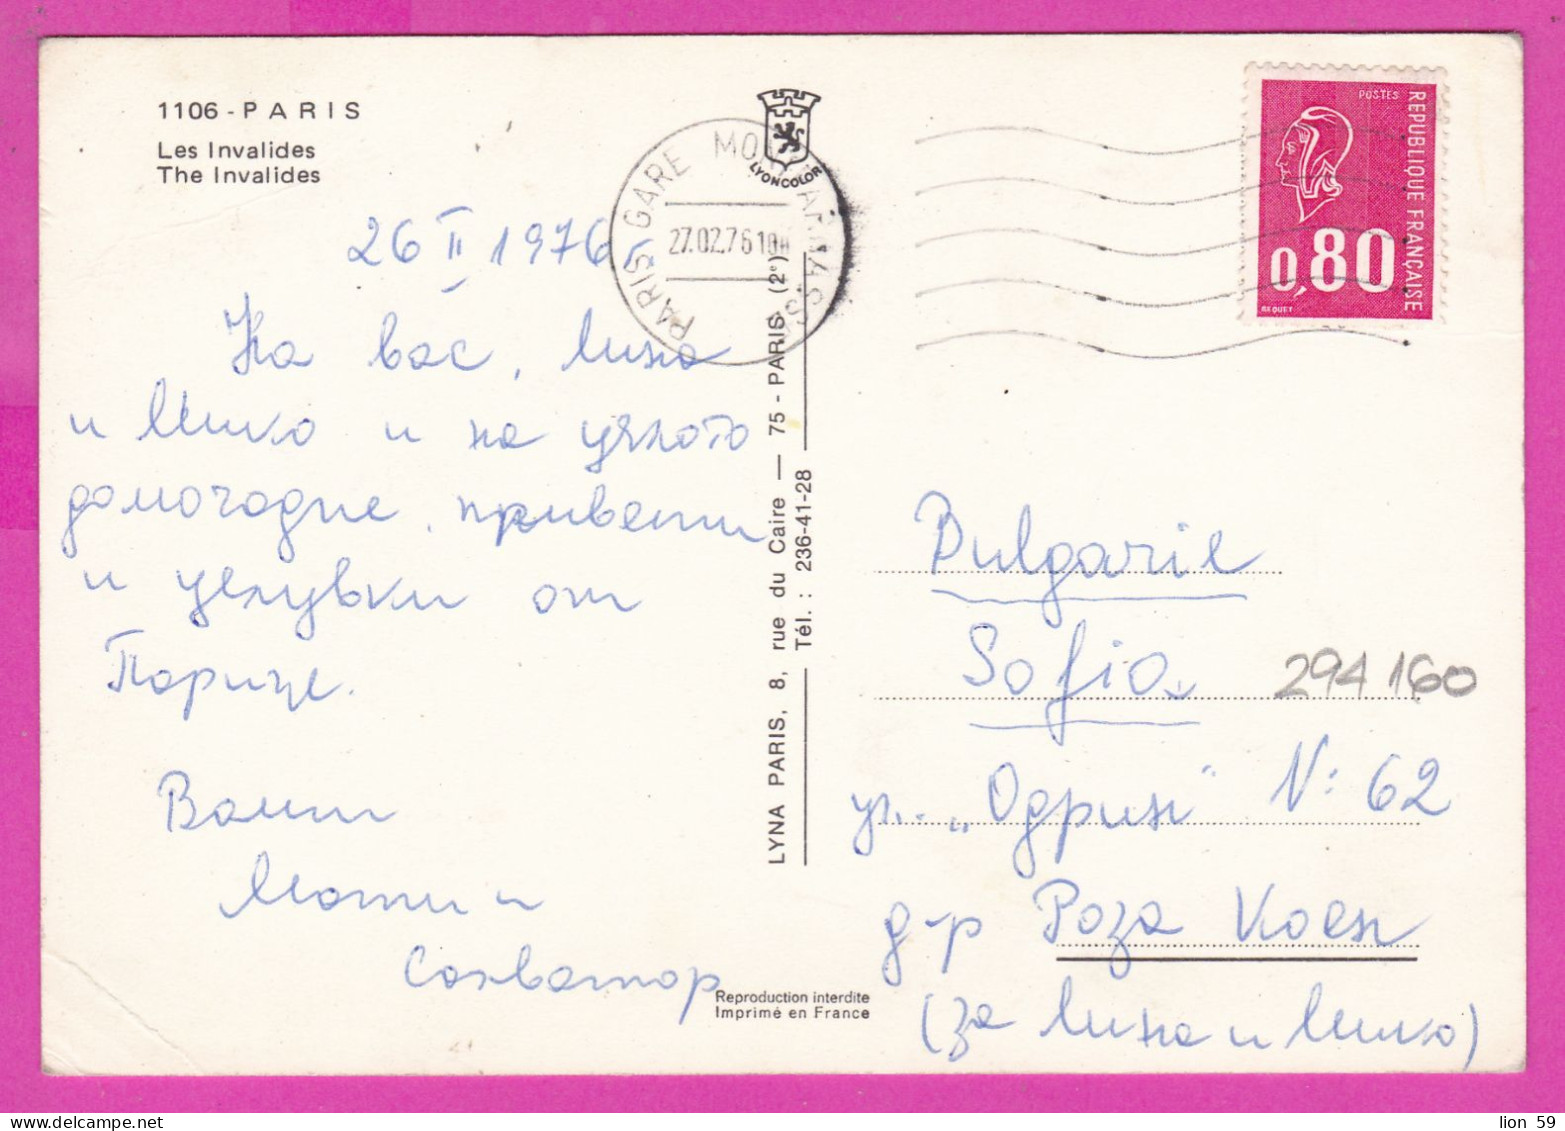 1106 - PARIS
Les Invalides
The Invalides
26 II 1976
На вас, Лина
и Мишко и на цялото
домочадие, привети
и целувки от
Париж.
Вашти
Мати и
Салватор
PARIS GARE MONTPARNASSE
27.02.76 10H
LYONCOLOR
LYNA PARIS, 8, rue du Caire — 75 - PARIS (2e)
Tél. : 236-41-28
Reproduction interdite
Imprimé en France
POSTES
REPUBLIQUE FRANÇAISE
0,80
BEQUET
Bulgarie
Sofia
294160
ул. „Одрин“ N: 62
д-р Роза Коен
(за Лина и Мишко)
lion 59